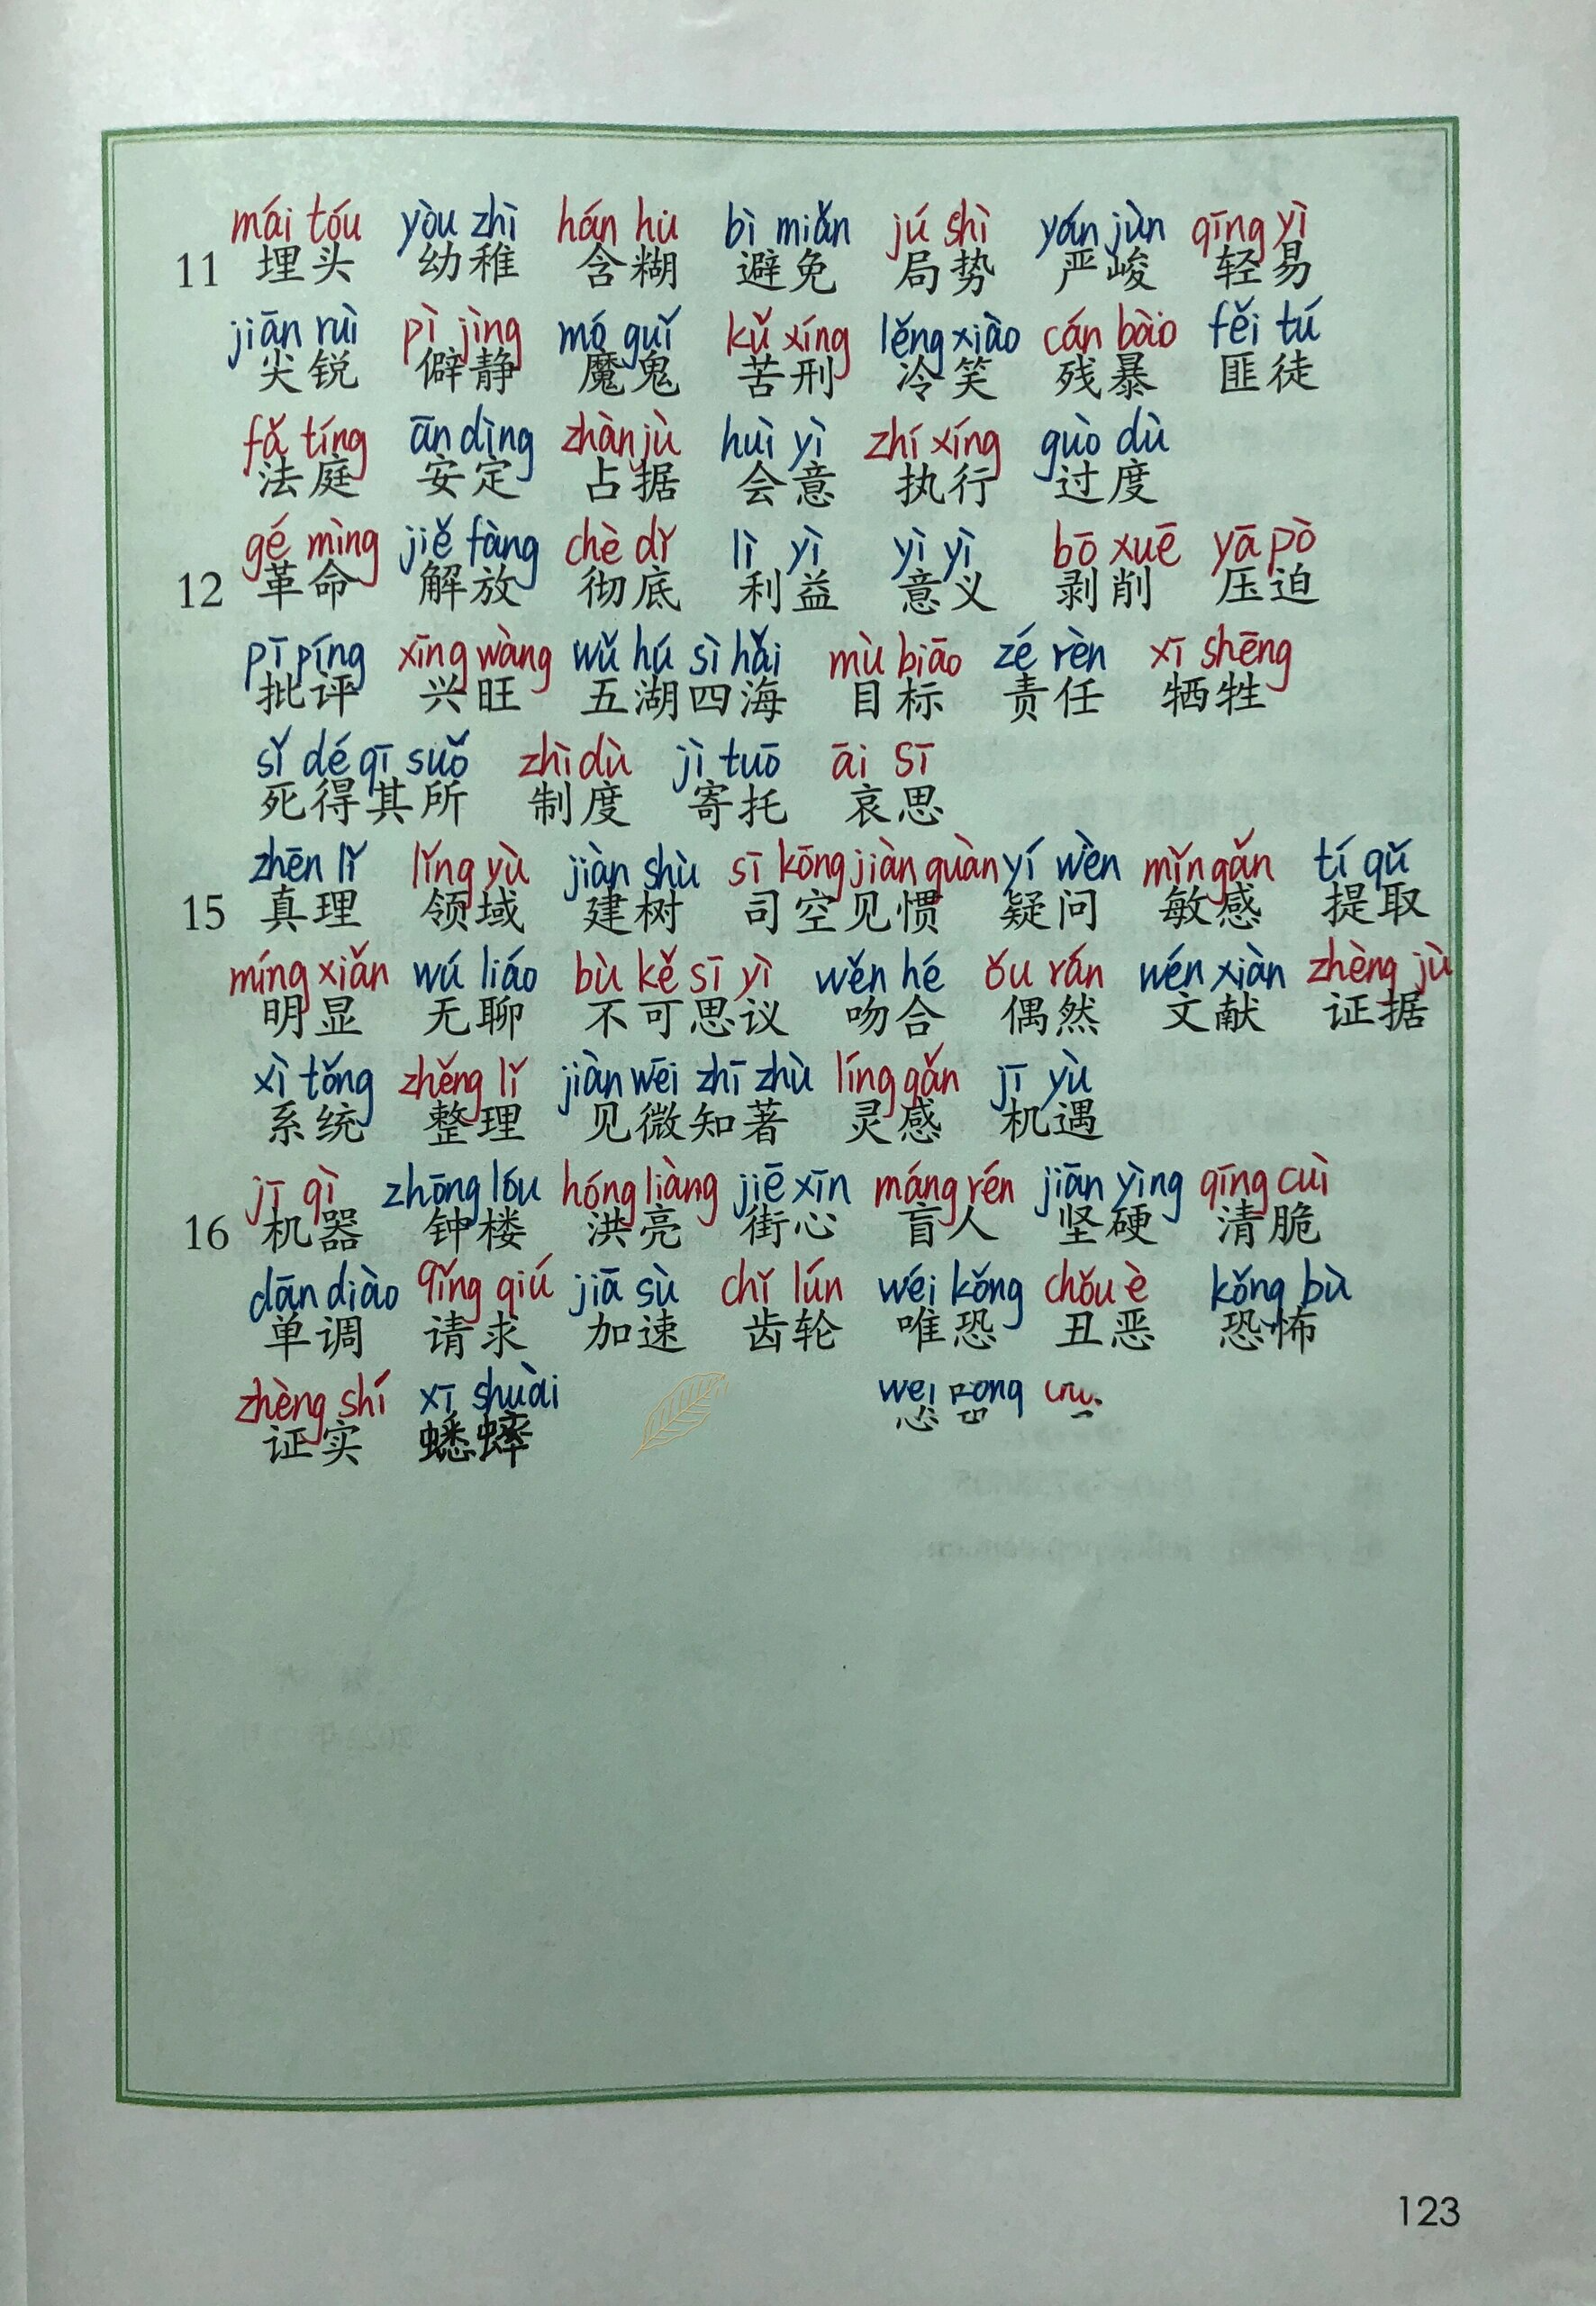 mái tóu yòu zhì hán hu bì miǎn jú shì yán jùn qīng yì
11 埋头 幼稚 含糊 避免 局势 严峻 轻易
jiān ruì pì jìng mó guǐ kǔ xíng lěng xiào cán bào fěi tú
尖锐 僻静 魔鬼 苦刑 冷笑 残暴 匪徒
fǎ tíng ān dìng zhàn jù huì yì zhí xíng guò dù
法庭 安定 占据 会意 执行 过度
gé mìng jiě fàng chè dǐ lì yì yì yì bō xuē yā pò
12 革命 解放 彻底 利益 意义 剥削 压迫
pī píng xīng wàng wǔ hú sì hǎi mù biāo zé rèn xī shēng
批评 兴旺 五湖四海 目标 责任 牺牲
sǐ dé qī suǒ zhì dù jì tuō āi sī
死得其所 制度 寄托 哀思
zhēn lǐ lǐng yù jiàn shù sī kōng jiàn quàn yí wèn mǐn gǎn tí qǔ
15 真理 领域 建树 司空见惯 疑问 敏感 提取
míng xiǎn wú liáo bù kě sī yì wěn hé ǒu rán wén xiàn zhèng jù
明显 无聊 不可思议 吻合 偶然 文献 证据
xì tǒng zhěng lǐ jiàn wēi zhī zhù líng gǎn jī yù
系统 整理 见微知著 灵感 机遇
jī qì zhōng lóu hóng liàng jiē xīn máng rén jiān yìng qīng cuì
16 机器 钟楼 洪亮 街心 盲人 坚硬 清脆
dān diào qǐng qiú jiā sù chǐ lún wéi kǒng chǒu è kǒng bù
单调 请求 加速 齿轮 唯恐 丑恶 恐怖
zhèng shí xī shuài
证实 蟋蟀
123